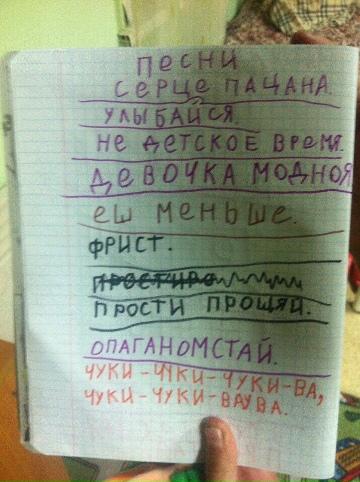 песни
серце пачана.
улыбайся.
не детское время.
девочка модноя
еш меньше.
фрист.
прости прощяй.
опаганомстай.
чуки-чуки-чуки-ва,
чуки-чуки-ваува.